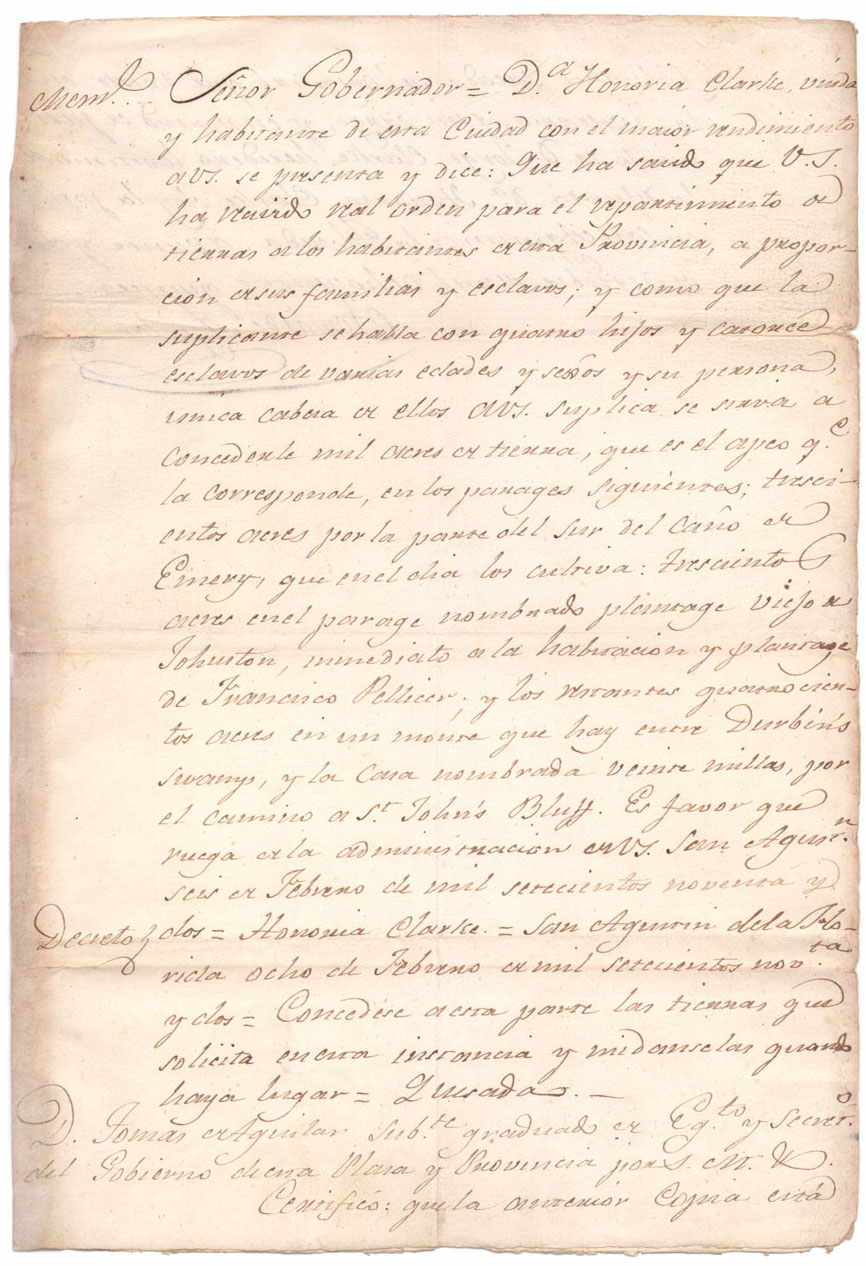 Meml. Señor Gobernador = D.a Honoria Clarke, viuda
y habitante de esta Ciudad con el maior rendimiento
a VS. se presenta y dice: Que ha savido que V.S.
ha recivido real orden para el repartimiento de
tierras a los habitantes de esta Provincia, a propor-
cion de sus familias y esclavos; y como que la
suplicante se habla con quatro hijos y catorce
esclavos de varias edades y sexsos y su persona,
unica cabeza de ellos a VS. suplica se sirva de
concederle mil acres de tierra, que es el apeo q.e
la corresponde, en los parages siguientes; tresci-
entos acres por la parte del sur del Caño de
Emery, que en el dia los cultiva: trescientos
acres en el parage nombrado plantage viejo de
Johnston, inmediato a la habitacion y plantage
de Francisco Pellicer; y los restantes quatrocien-
tos acres en un monte que hay entre Durbin's
swamp, y la Casa nombrada veinte millas, por
el camino a St. John's Bluff. Es favor que
ruega de la administracion de VS. San Agustn.
seis de Febrero de mil setecientos noventa y
Decreto dos = Honoria Clarke. = San Agustin de la Flo-
rida ocho de Febrero de mil setecientos nov.ta
y dos = Concedese a esta parte las tierras que
solicita en esta instancia y midanselas quando
haya lugar = Quesada. —
D. Tomas de Aguilar sub.te graduado de Eg.to y Secret.o
del Gobierno de esta Plaza y Provincia por S. M. &.
Certifico: que la anterior Copia está